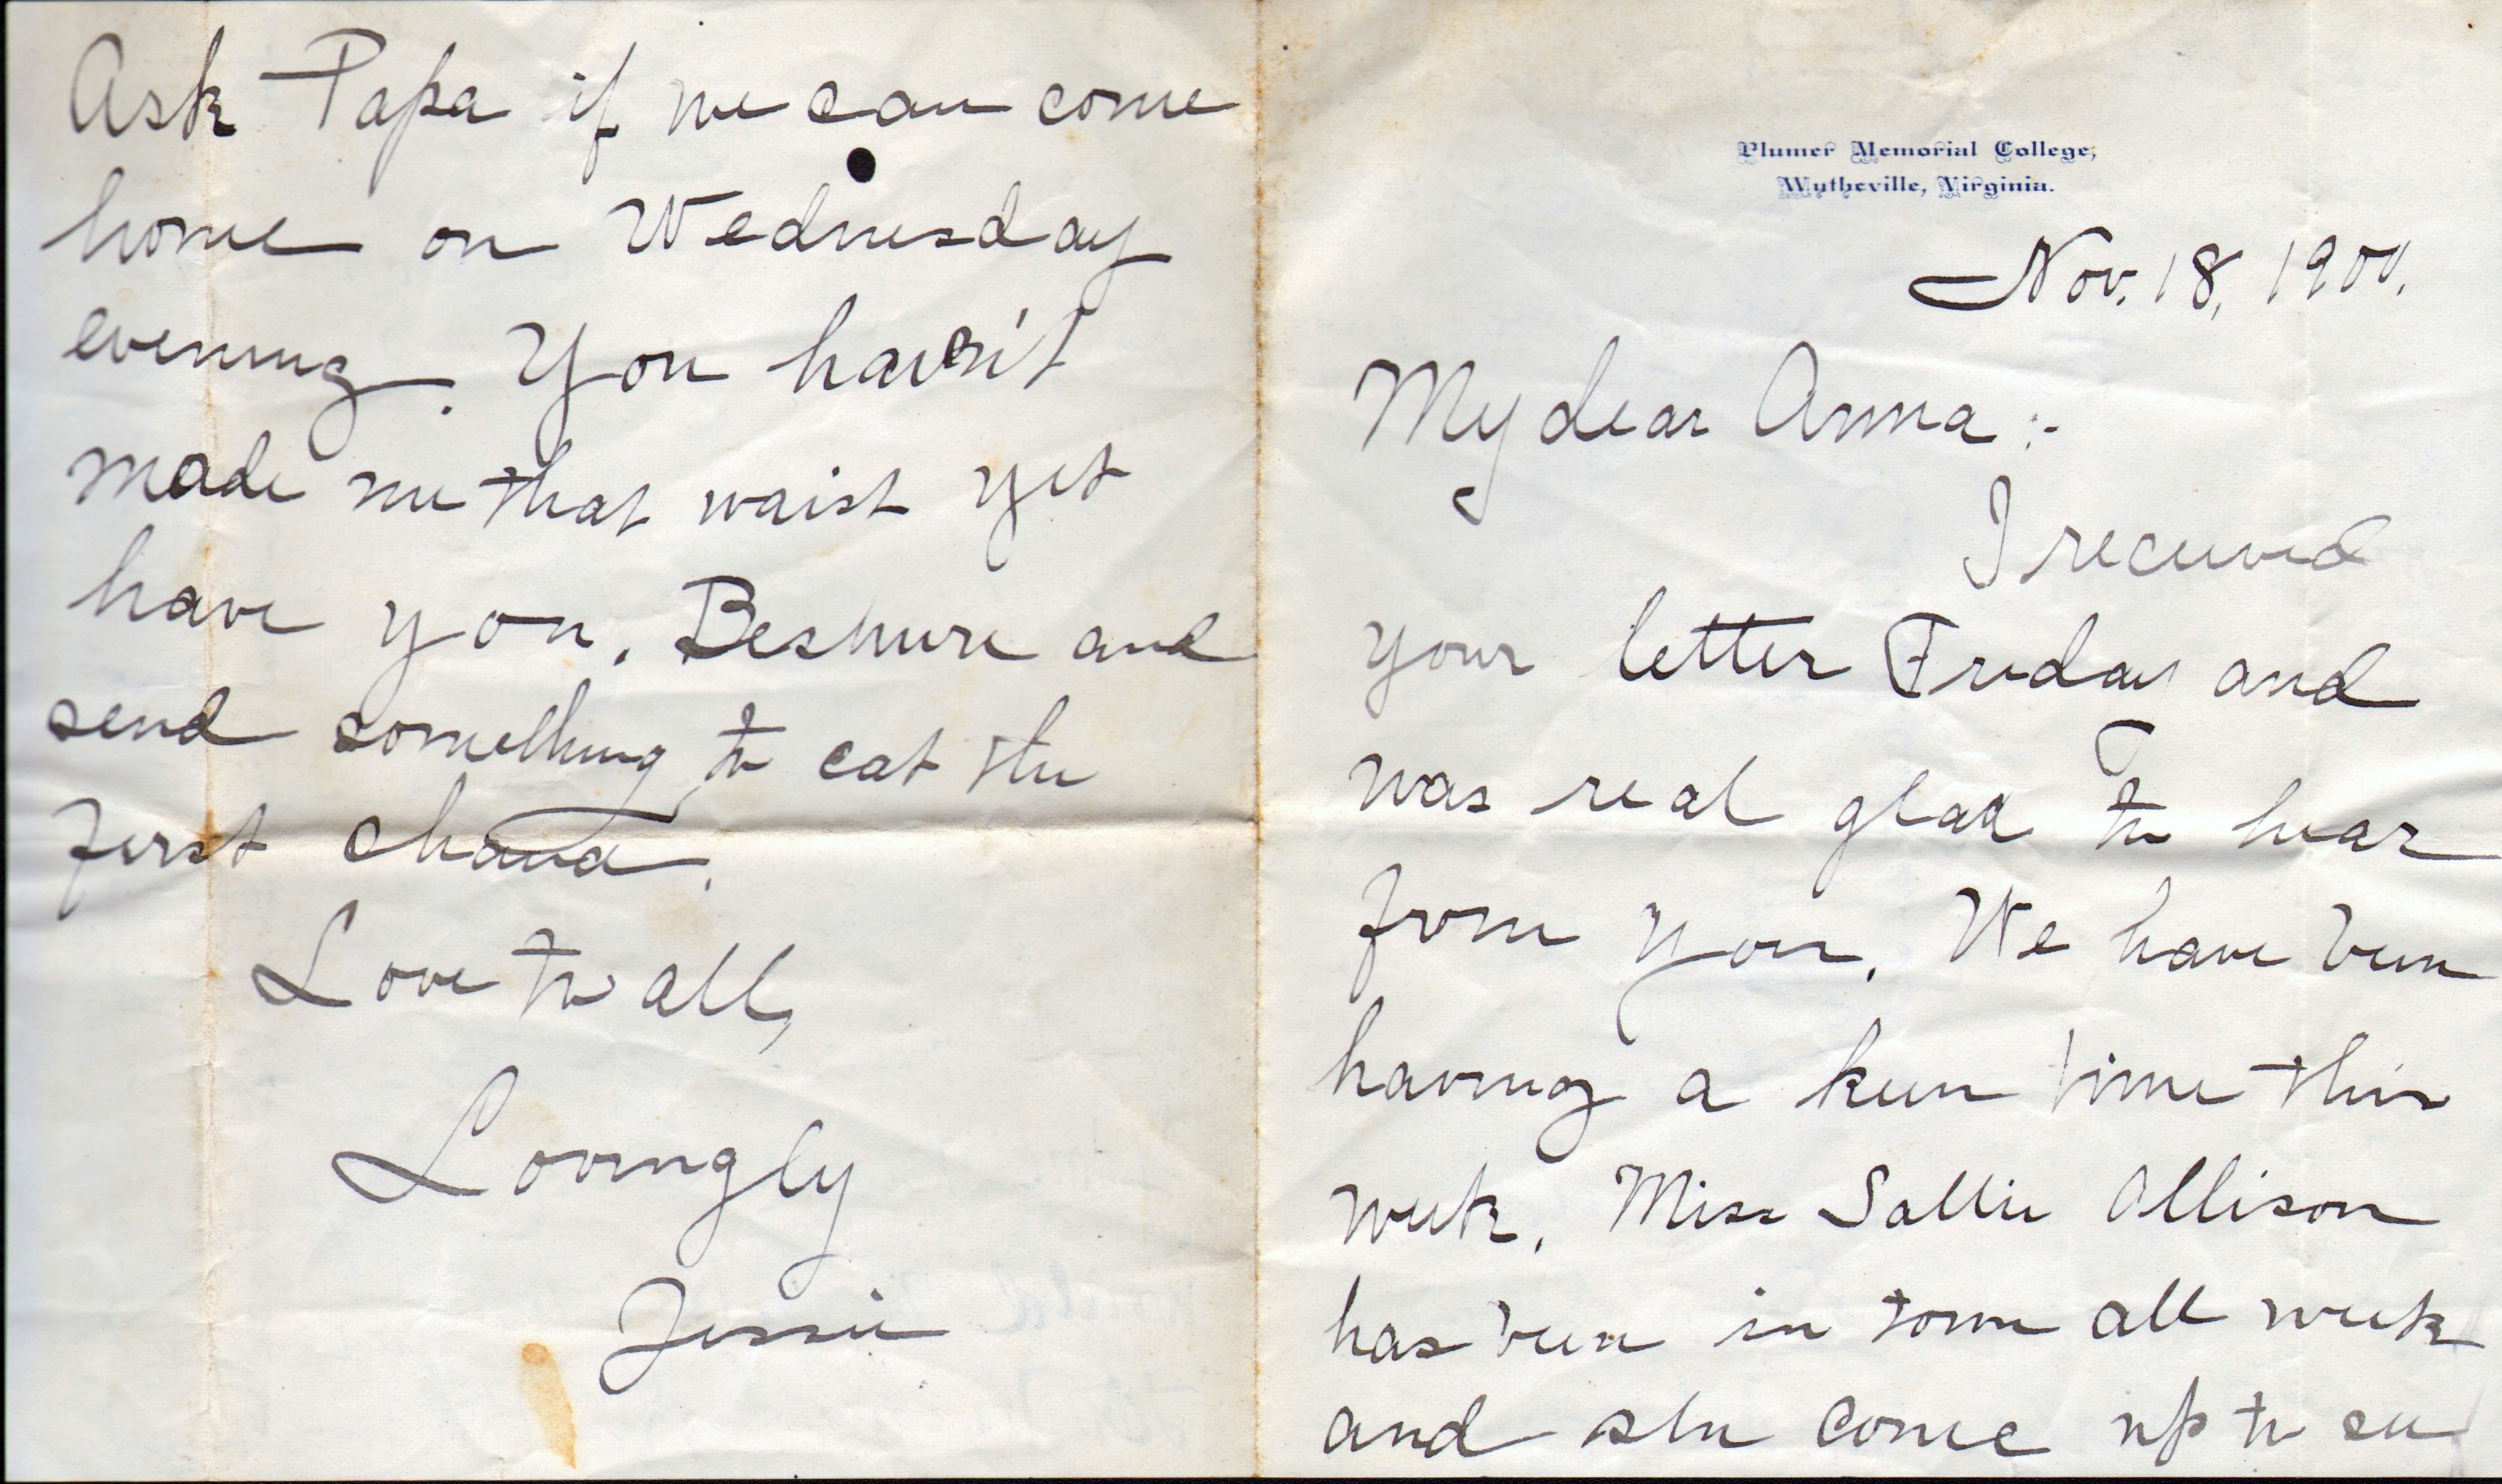 Plumer Memorial College,
Wytheville, Virginia.
Nov. 18, 1901.
My dear Anna :-
I received
your letter Friday and
was real glad to hear
from you. We have been
having a keen time this
week. Miss Sallie Allison
has been in town all week
and she come up to see
Ask Papa if we can come
home on Wednesday
evening. You haven't
made me that waist yet
have you. Beshure and
send something to eat the
first chance.
Love to all,
Lovingly
Jessie